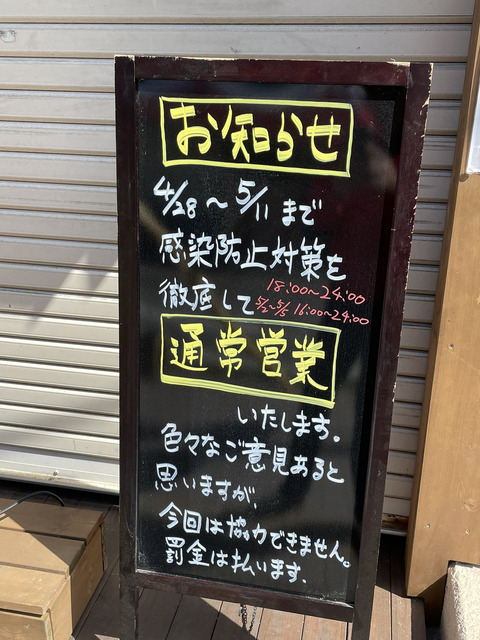 お知らせ
4/28〜5/11まで
感染防止対策を
徹底して 18:00〜24:00
5/2〜5/5 16:00〜24:00
通常営業
いたします。
色々なご意見あると
思いますが、
今回は協力できません。
罰金は払います.